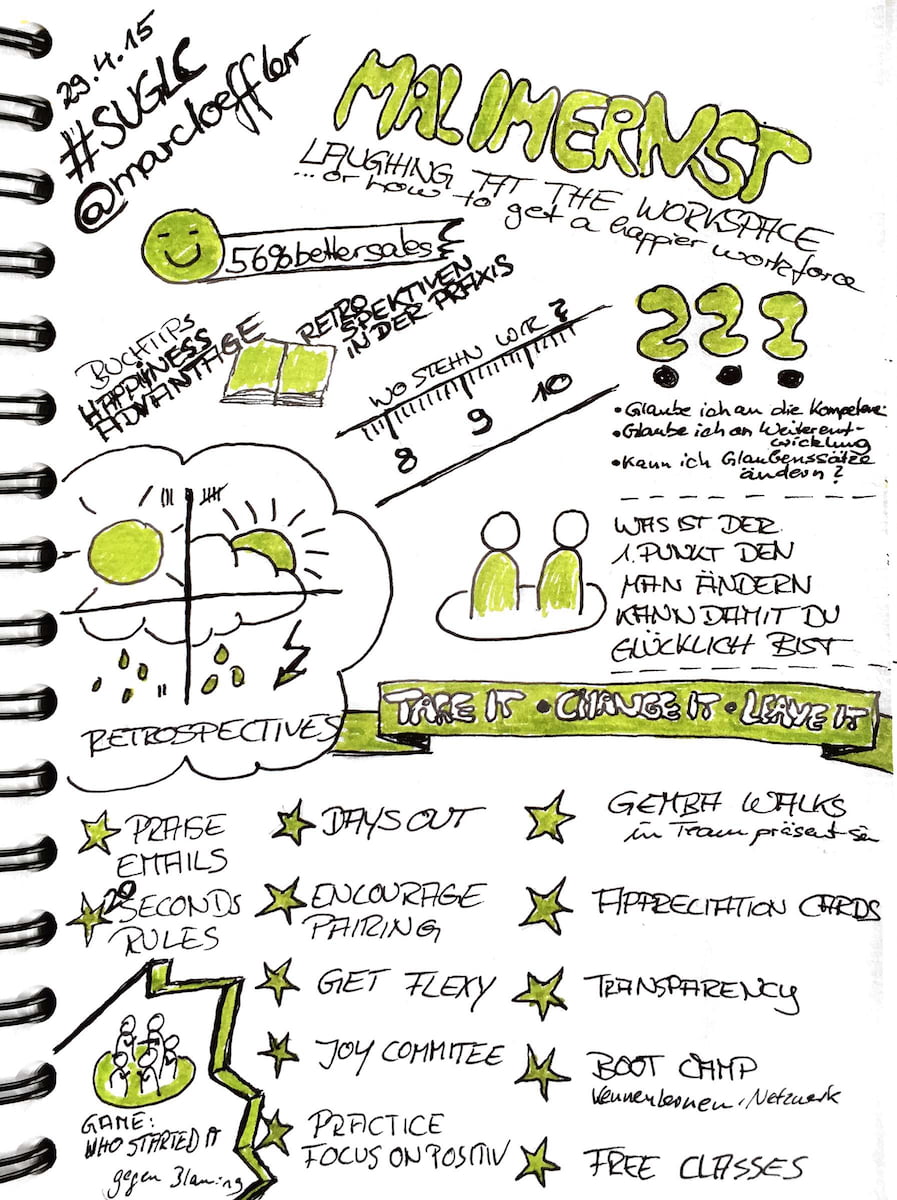 29.4.15
#SUGLC
@marcloeffler
MAL IM ERNST
LAUGHING AT THE WORKSPACE
...or how to get a happier workforce
56% better sales
BUCHTIPS
HAPPINESS
ADVANTAGE
RETRO
SPEKTIVEN
IN DER PRAXIS
WO STEHN WIR?
8 9 10
???
• Glaube ich an die Kompetenz
• Glaube ich an Weiterent-
wicklung
• Kann ich Glaubenssätze
ändern?
WAS IST DER
1. PUNKT DEN
MAN ÄNDERN
KANN DAMIT DU
GLÜCKLICH BIST
RETROSPECTIVES
TAKE IT • CHANGE IT • LEAVE IT
PRAISE
EMAILS
20
SECONDS
RULES
GAME:
WHO STARTED IT
gegen Blaming
DAYS OUT
ENCOURAGE
PAIRING
GET FLEXY
JOY COMMITEE
PRACTICE
FOCUS ON POSITIV
GEMBA WALKS
im Team präsent sein
APPRECIATION CARDS
TRANSPARENCY
BOOT CAMP
Kennenlernen, Netzwerk
FREE CLASSES